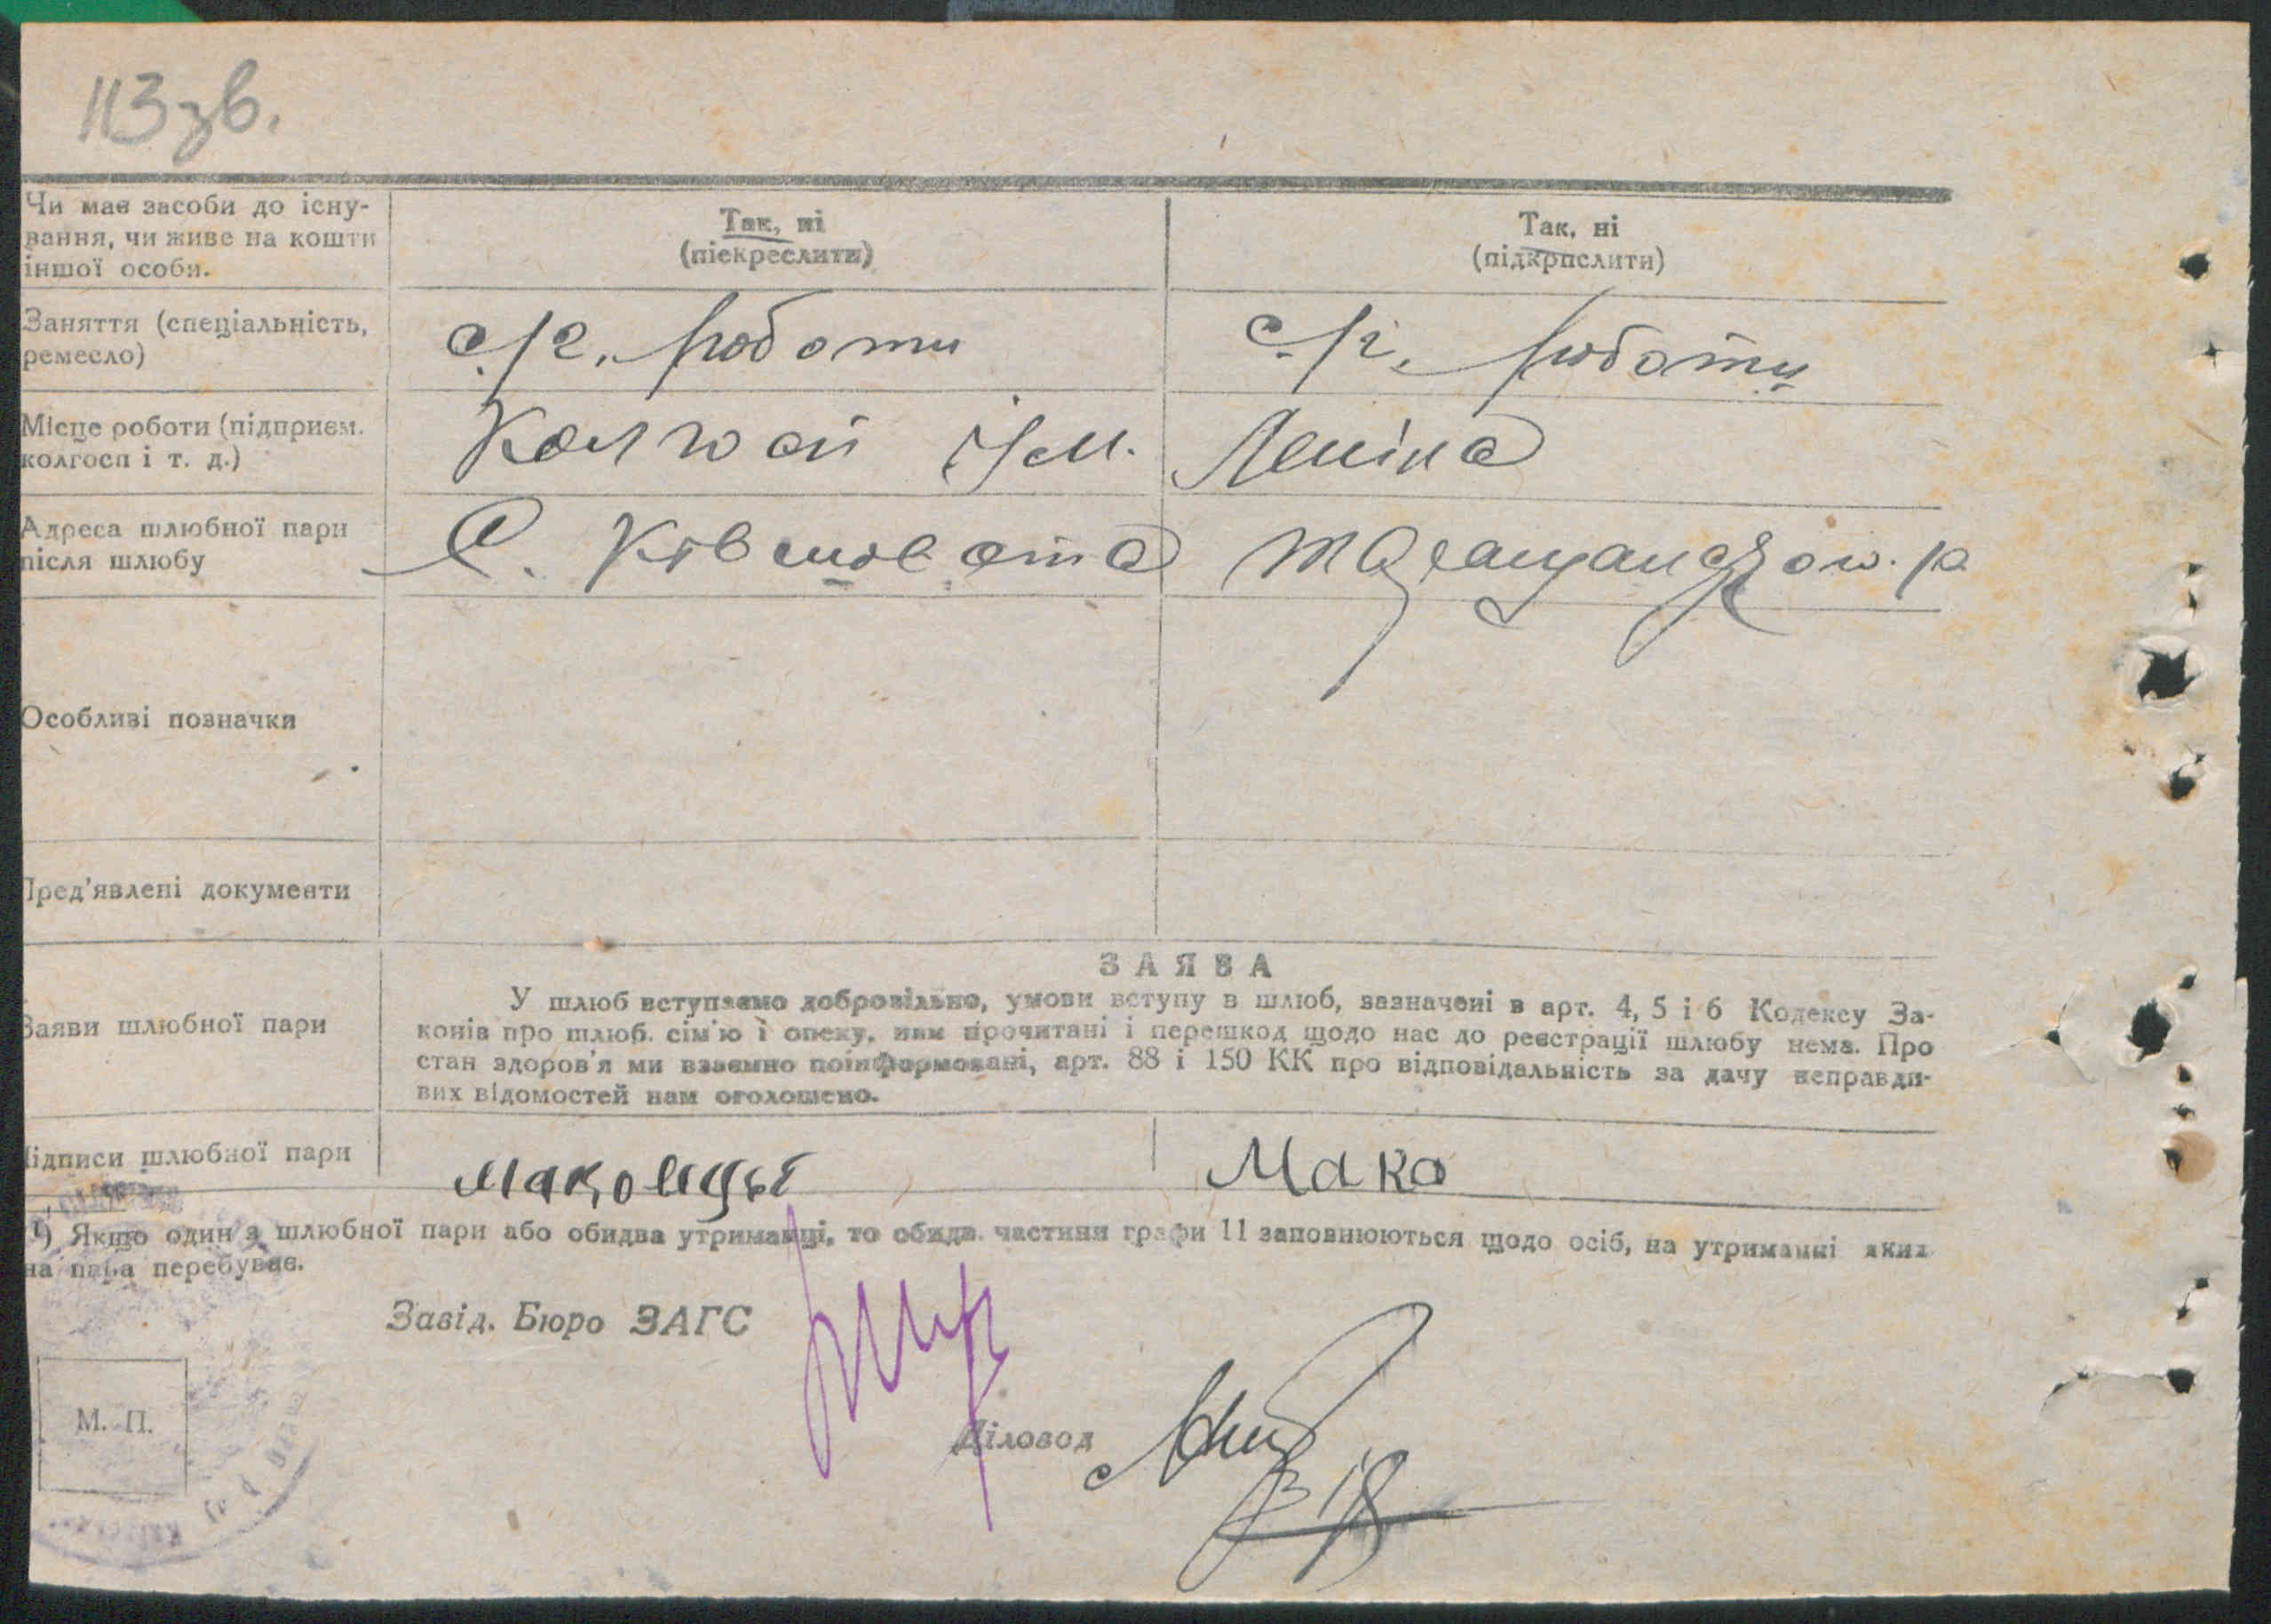 113 зв.
Чи має засоби до існу-
вання, чи живе на кошти
іншої особи.
Так, ні
(піекреслити)
Так, ні
(підкрислити)
Заняття (спеціальність,
ремесло)
с/г. роботи
с/г. роботи
Місце роботи (підприєм.
колгосп і т. д.)
Колгосп ім. Леніна
Адреса шлюбної пари
після шлюбу
С. Ківшовата Таращанського р
Особливі позначки
Пред'явлені документи
ЗАЯВА
Заяви шлюбної пари
У шлюб вступаємо добровільно, умови вступу в шлюб, зазначені в арт. 4, 5 і 6 Кодексу За-
конів про шлюб. сім'ю і опеку, нам прочитані і перешкод щодо нас до реєстрації шлюбу нема. Про
стан здоров'я ми взаємно поінформовані, арт. 88 і 150 КК про відповідальність за дачу неправди-
вих відомостей нам оголошено.
Підписи шлюбної пари
Мако
¹) Якщо один з шлюбної пари або обидва утриманці, то обидв. частини графи 11 заповнюються щодо осіб, на утриманні яких
на пара перебуває.
Завід. Бюро ЗАГС
М. П.
Діловод